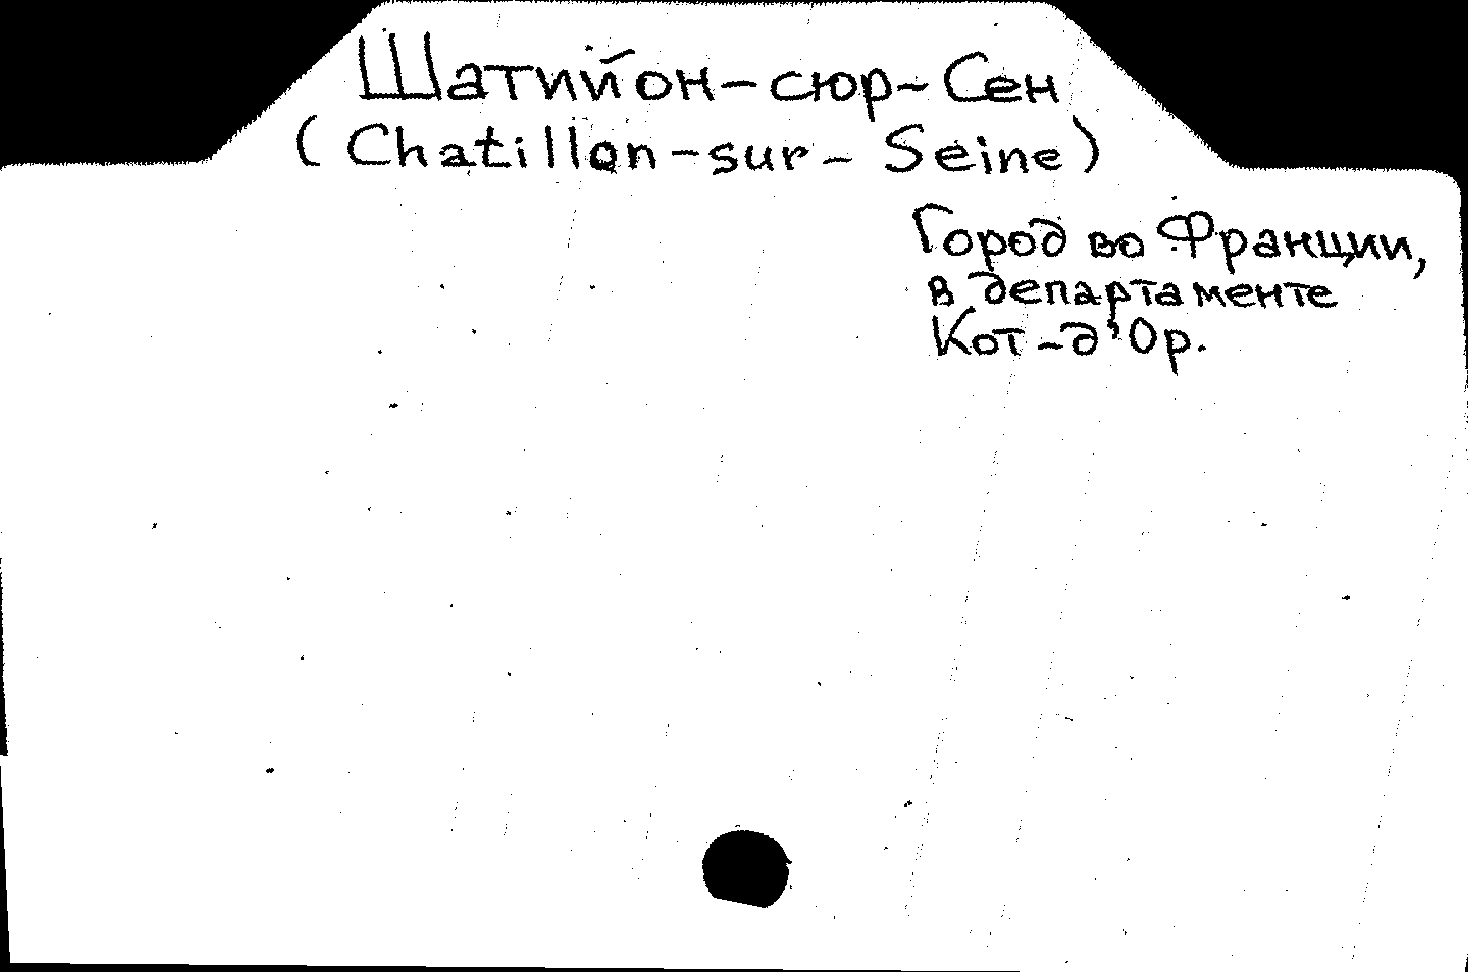 Шатийон-сюр-Сен
(Chatillon-sur-Seine)
Город во Франции,
в департаменте
Кот-д'Ор.